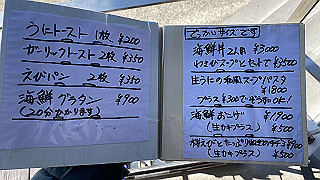 うにトースト 1枚 ¥200
ガーリックトースト 2枚 ¥350
えびパン 2枚 ¥350
海鮮グラタン ¥900
(20分かかります)
でっかいサイズです
海鮮丼 2人用 ¥3000
わさびスープとセットで ¥3500
生うにの和風スープパスタ
¥1800
プラス¥300で
海鮮 ¥1900
(生かきプラス) ¥500
(生かきプラス) ¥500